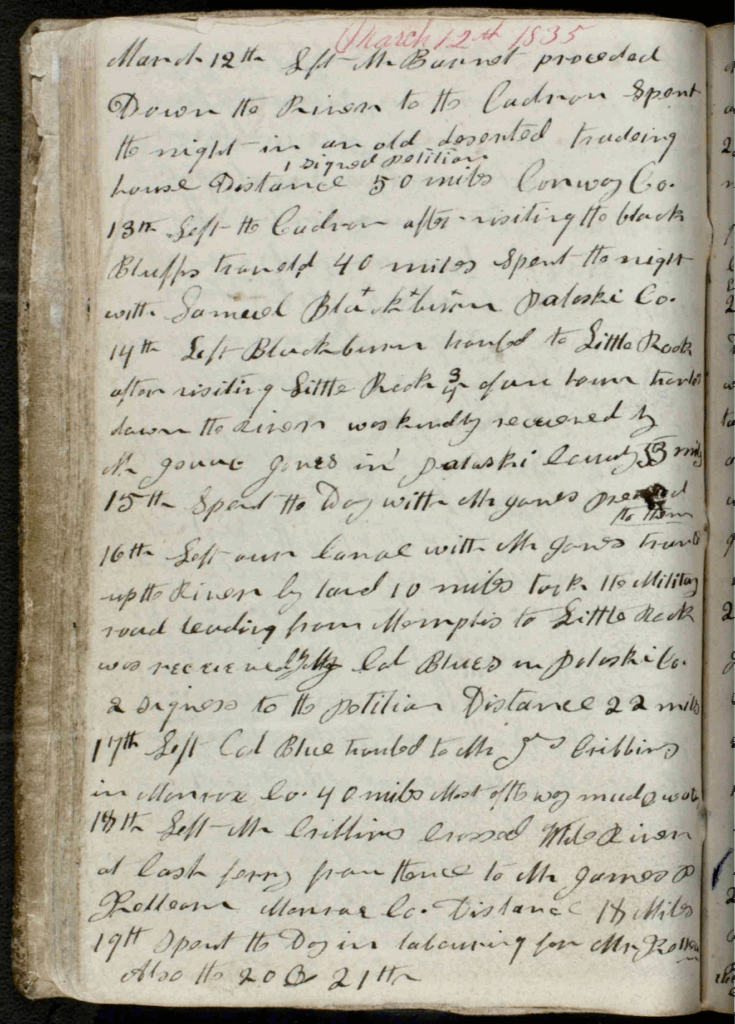 March 12th 1835
March 12th Left Mr Burnet proceded
Down the River to the Cadron Spent
the night in an old deserted tradeing
1 signed petition
house Distance 50 miles Conway Co.
13th Left the Cadron after visiting the black
Bluffs traveld 40 miles Spent the night
with Samuel Blackburn Pulaski Co.
14th Left Blackburn traveled to Little Rock
after visiting Little Rock 3 of our
down the River was kindly receieved by
Mr Jones in Pulaski County 53 miles
15th Spent the Day with Mr Jones
to them
16th Left our Canoe with Mr Jones
up the River by land 10 miles took the Military
road leading from Memphis to Little Rock
was receieved by Col Blues in Pulaski Co.
2 signess to the petition Distance 22 miles
17th Left Col Blue traveled to Mr Cribbins
in Monroe Co. 40 miles Most of the way mud & water
18th Left Mr Cribbins Crossed White River
at ferry from thence to Mr James
Monroe Co. Distance 18 Miles
19th Spent the Day in labouring for Mr
Also the 20 & 21th